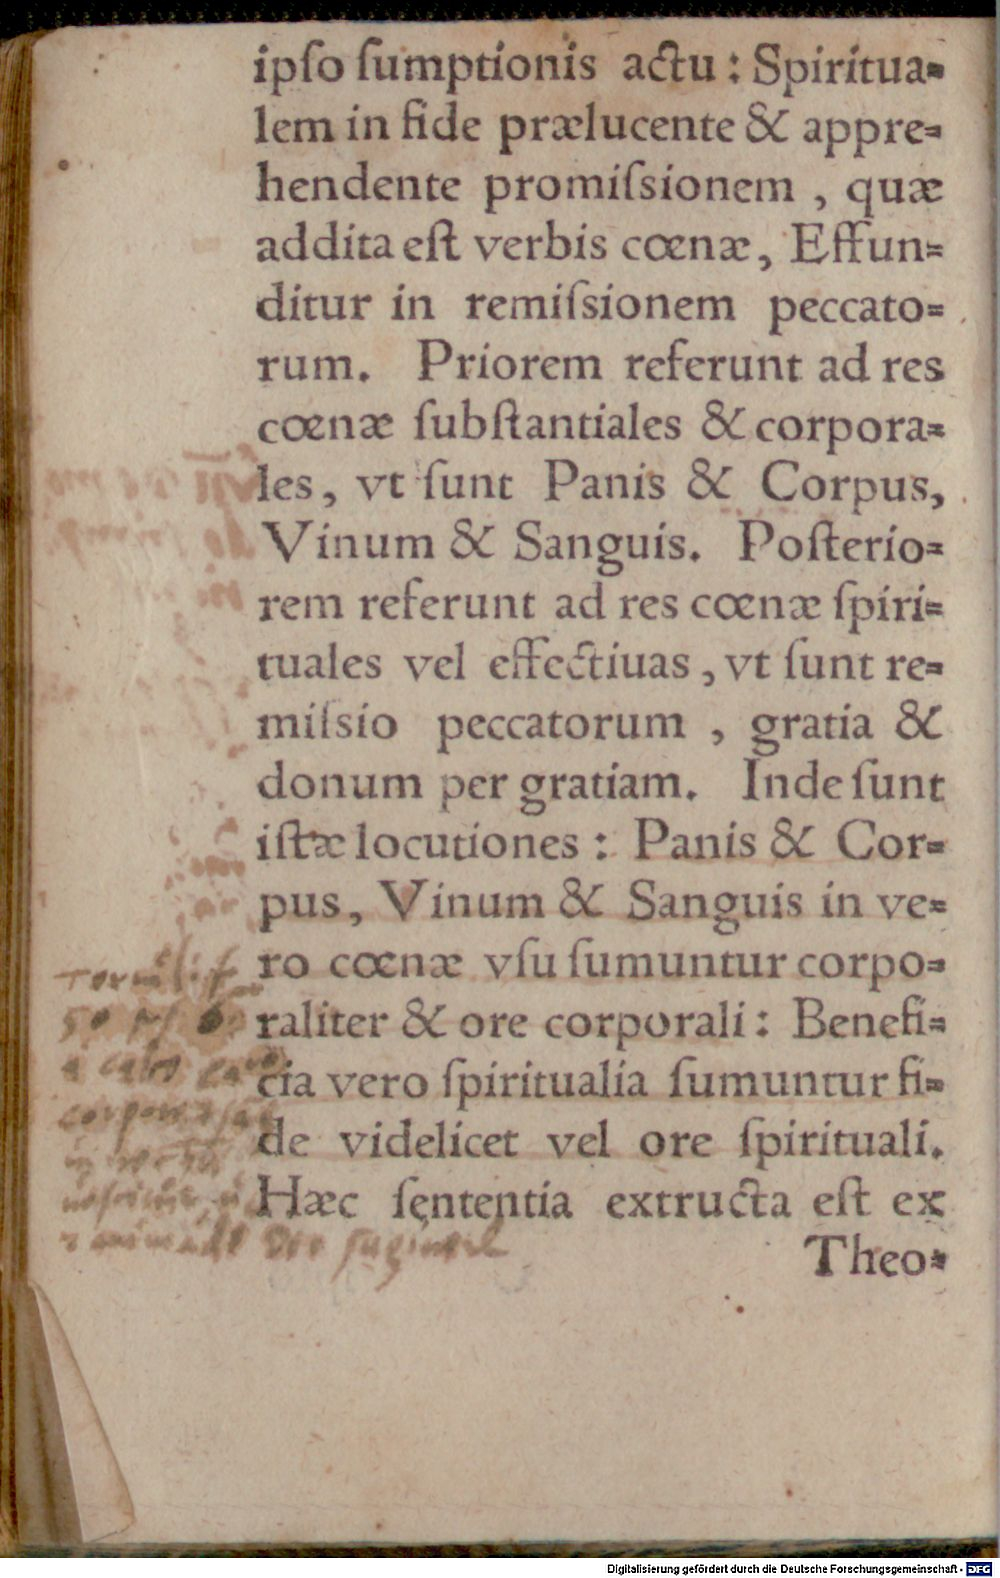 ipſo ſumptionis actu : Spiritua-
lem in fide prælucente & appre-
hendente promiſsionem , quæ
addita eſt verbis cœnæ, Effun-
ditur in remiſsionem peccato-
rum. Priorem referunt ad res
cœnæ ſubſtantiales & corpora-
les, vt ſunt Panis & Corpus,
Vinum & Sanguis. Poſterio-
rem referunt ad res cœnæ ſpiri-
tuales vel effectiuas , vt ſunt re-
miſsio peccatorum , gratia &
donum per gratiam. Inde ſunt
iſtæ locutiones : Panis & Cor-
pus, Vinum & Sanguis in ve-
ro cœnæ vſu ſumuntur corpo-
raliter & ore corporali : Benefi-
cia vero ſpiritualia ſumuntur fi-
de videlicet vel ore ſpirituali.
Hæc ſententia extructa eſt ex
Theo-
Digitalisierung gefördert durch die Deutsche Forschungsgemeinschaft - DFG